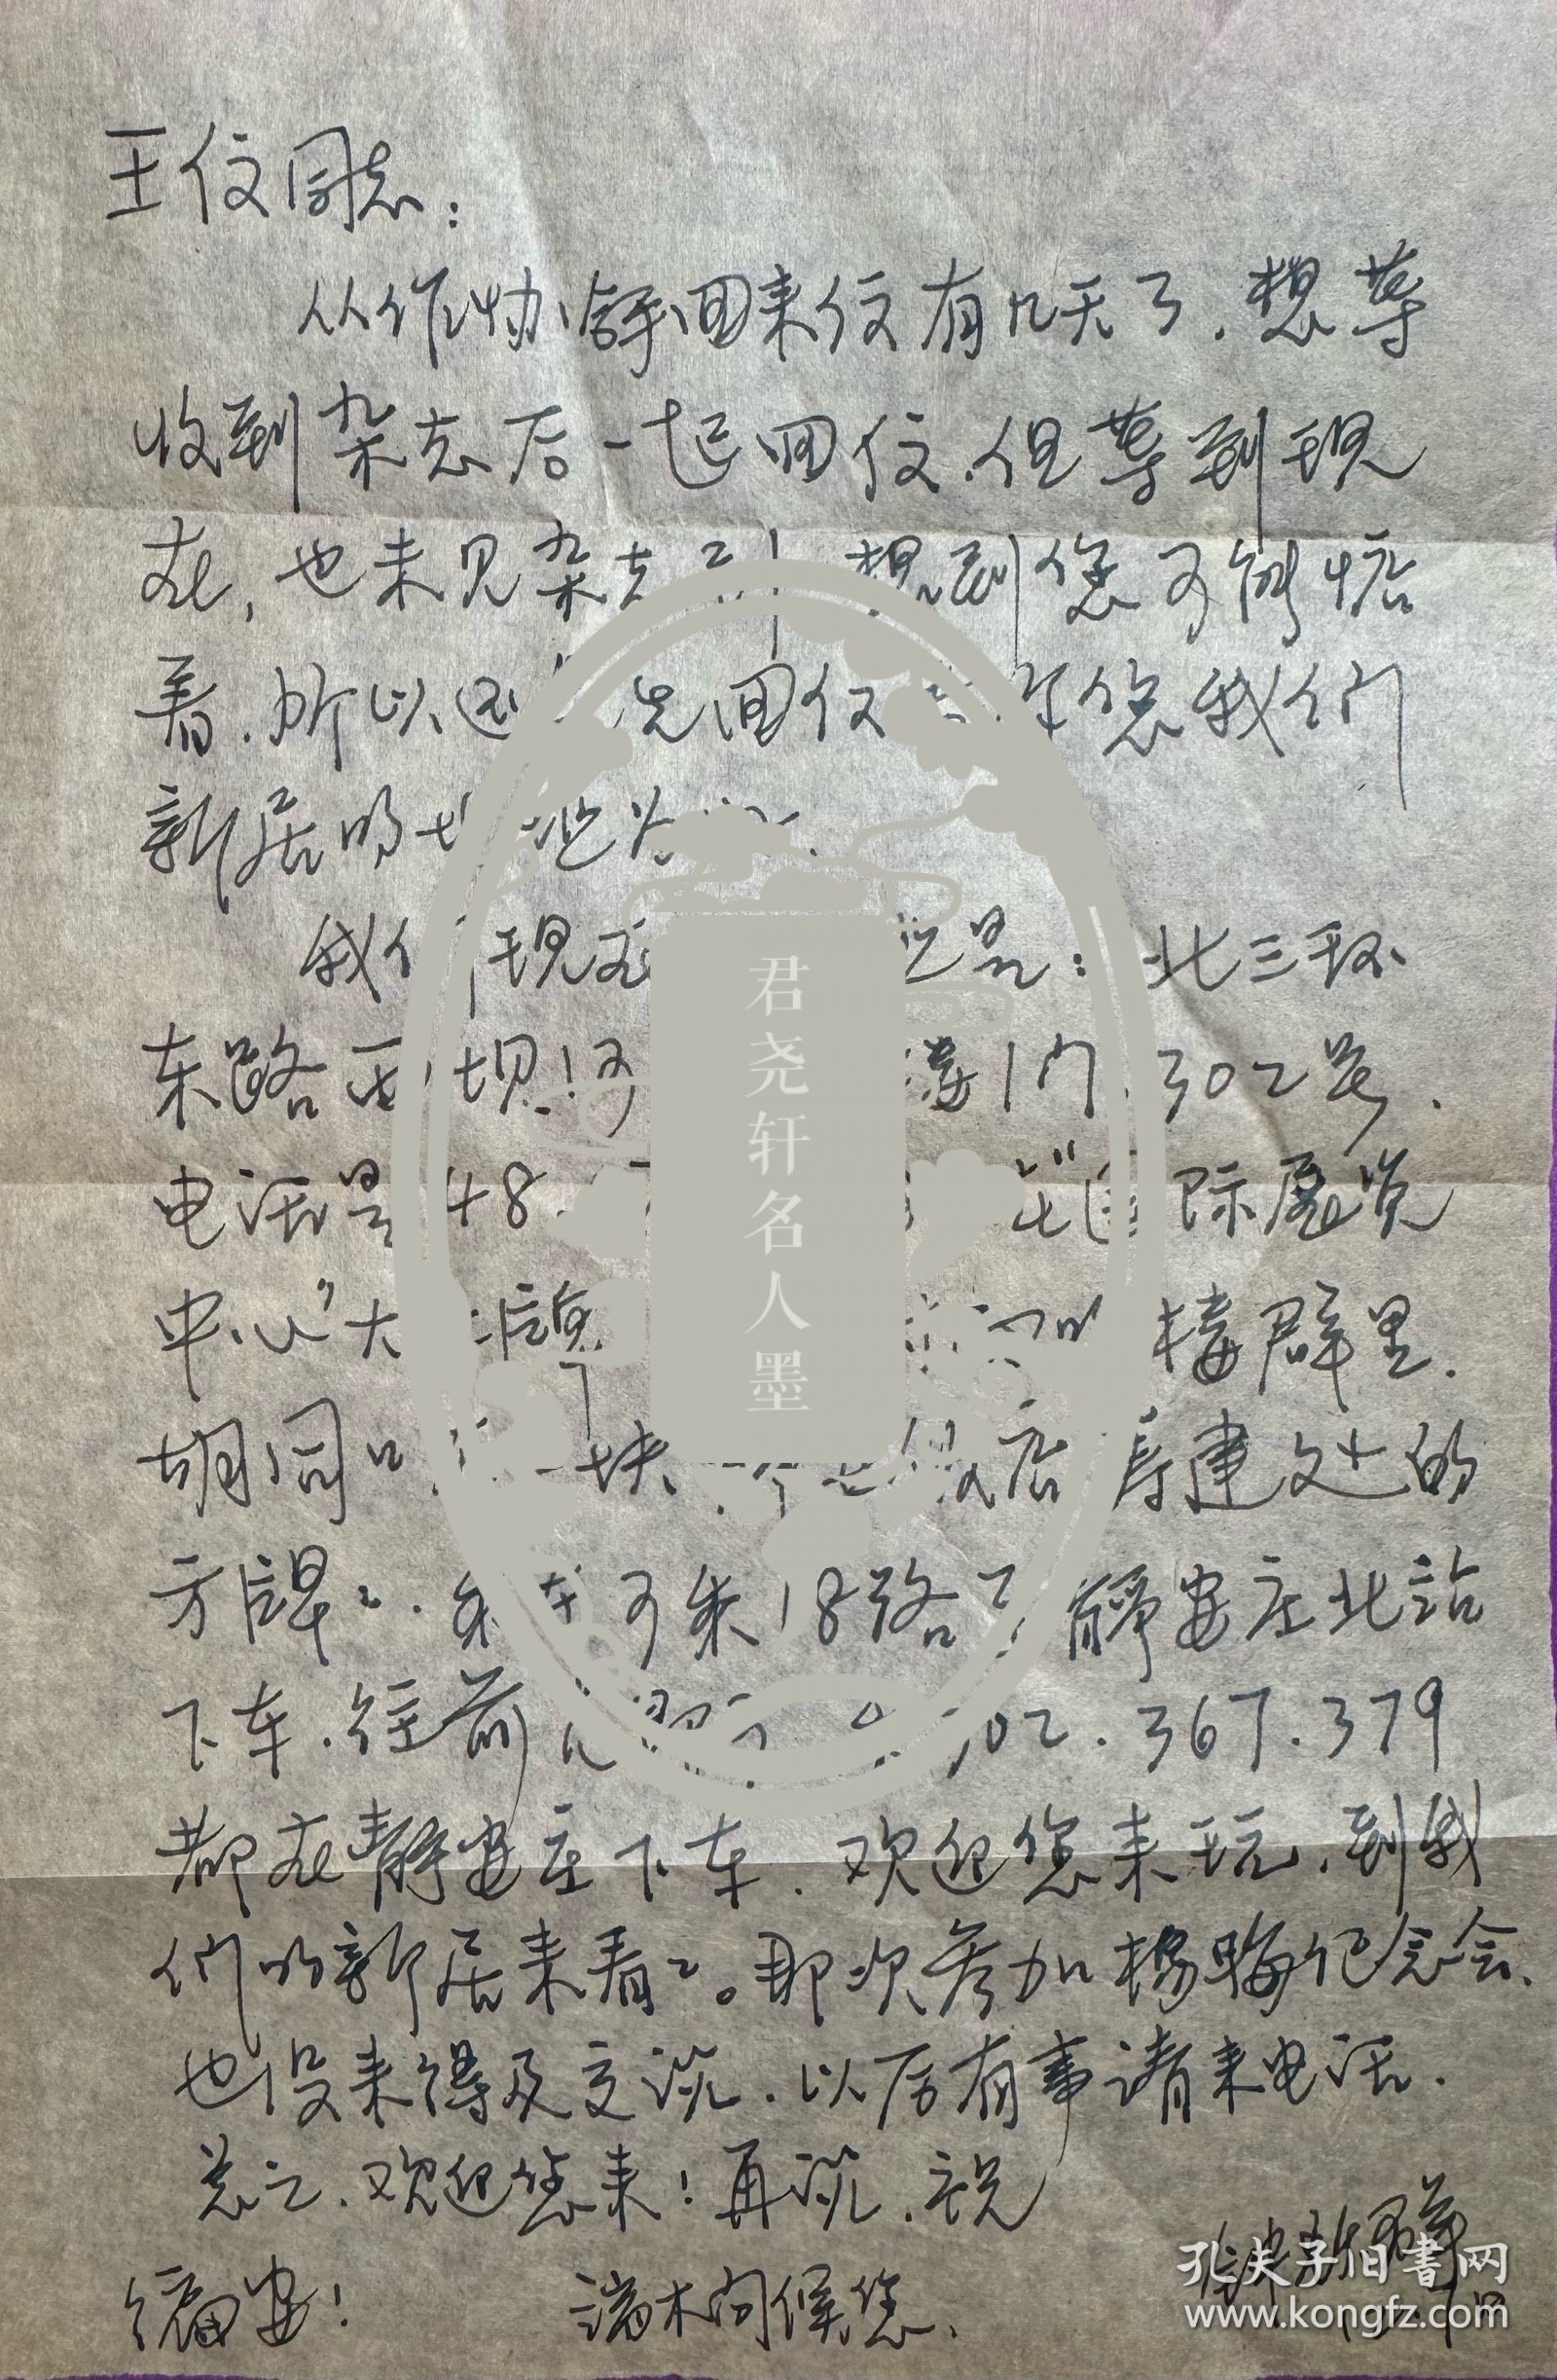 王仪同志：
从作协辞回来仅有几天了.想等
收到杂志后一起回信.但等到现
在,也未见杂志到 想到您可能惦
着.所以还 先回信 您我们
新居的地址为
我们现在 址是：北三环
东路西坝河 楼1门.302号.
电话是48 "国际展览
中心"大 楼群里.
胡同口 一块 饭店筹建处的
方牌.. 乘车可乘18路 静安庄北站
下车.往前 302.367.379
都在静安庄下车.欢迎您来玩.到我
们的新居来看々。那次参加杨晦纪念会、
也没来得及交谈.以后有事请来电话.
总之.欢迎您来！再谈.祝
编安！ 端木问候您.
钟耀群
君尧轩名人墨
孔夫子旧书网
www.kongfz.com